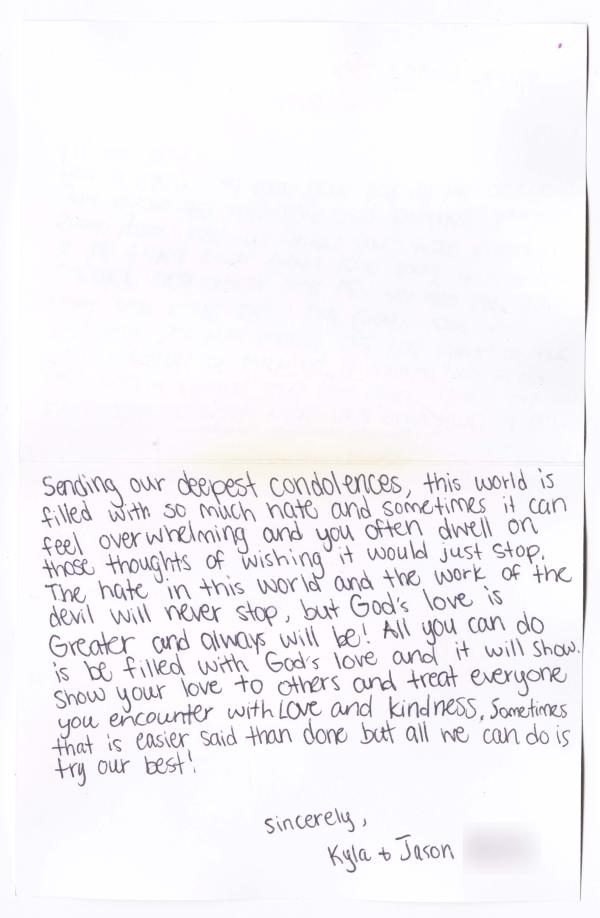 Sending our deepest condolences, this world is
filled with so much hate and sometimes it can
feel overwhelming and you often dwell on
those thoughts of wishing it would just stop.
The hate in this world and the work of the
devil will never stop, but God's love is
Greater and always will be! All you can do
is be filled with God's love and it will show.
Show your love to others and treat everyone
you encounter with Love and kindness. Sometimes
that is easier said than done but all we can do is
try our best!
sincerely,
Kyla + Jason